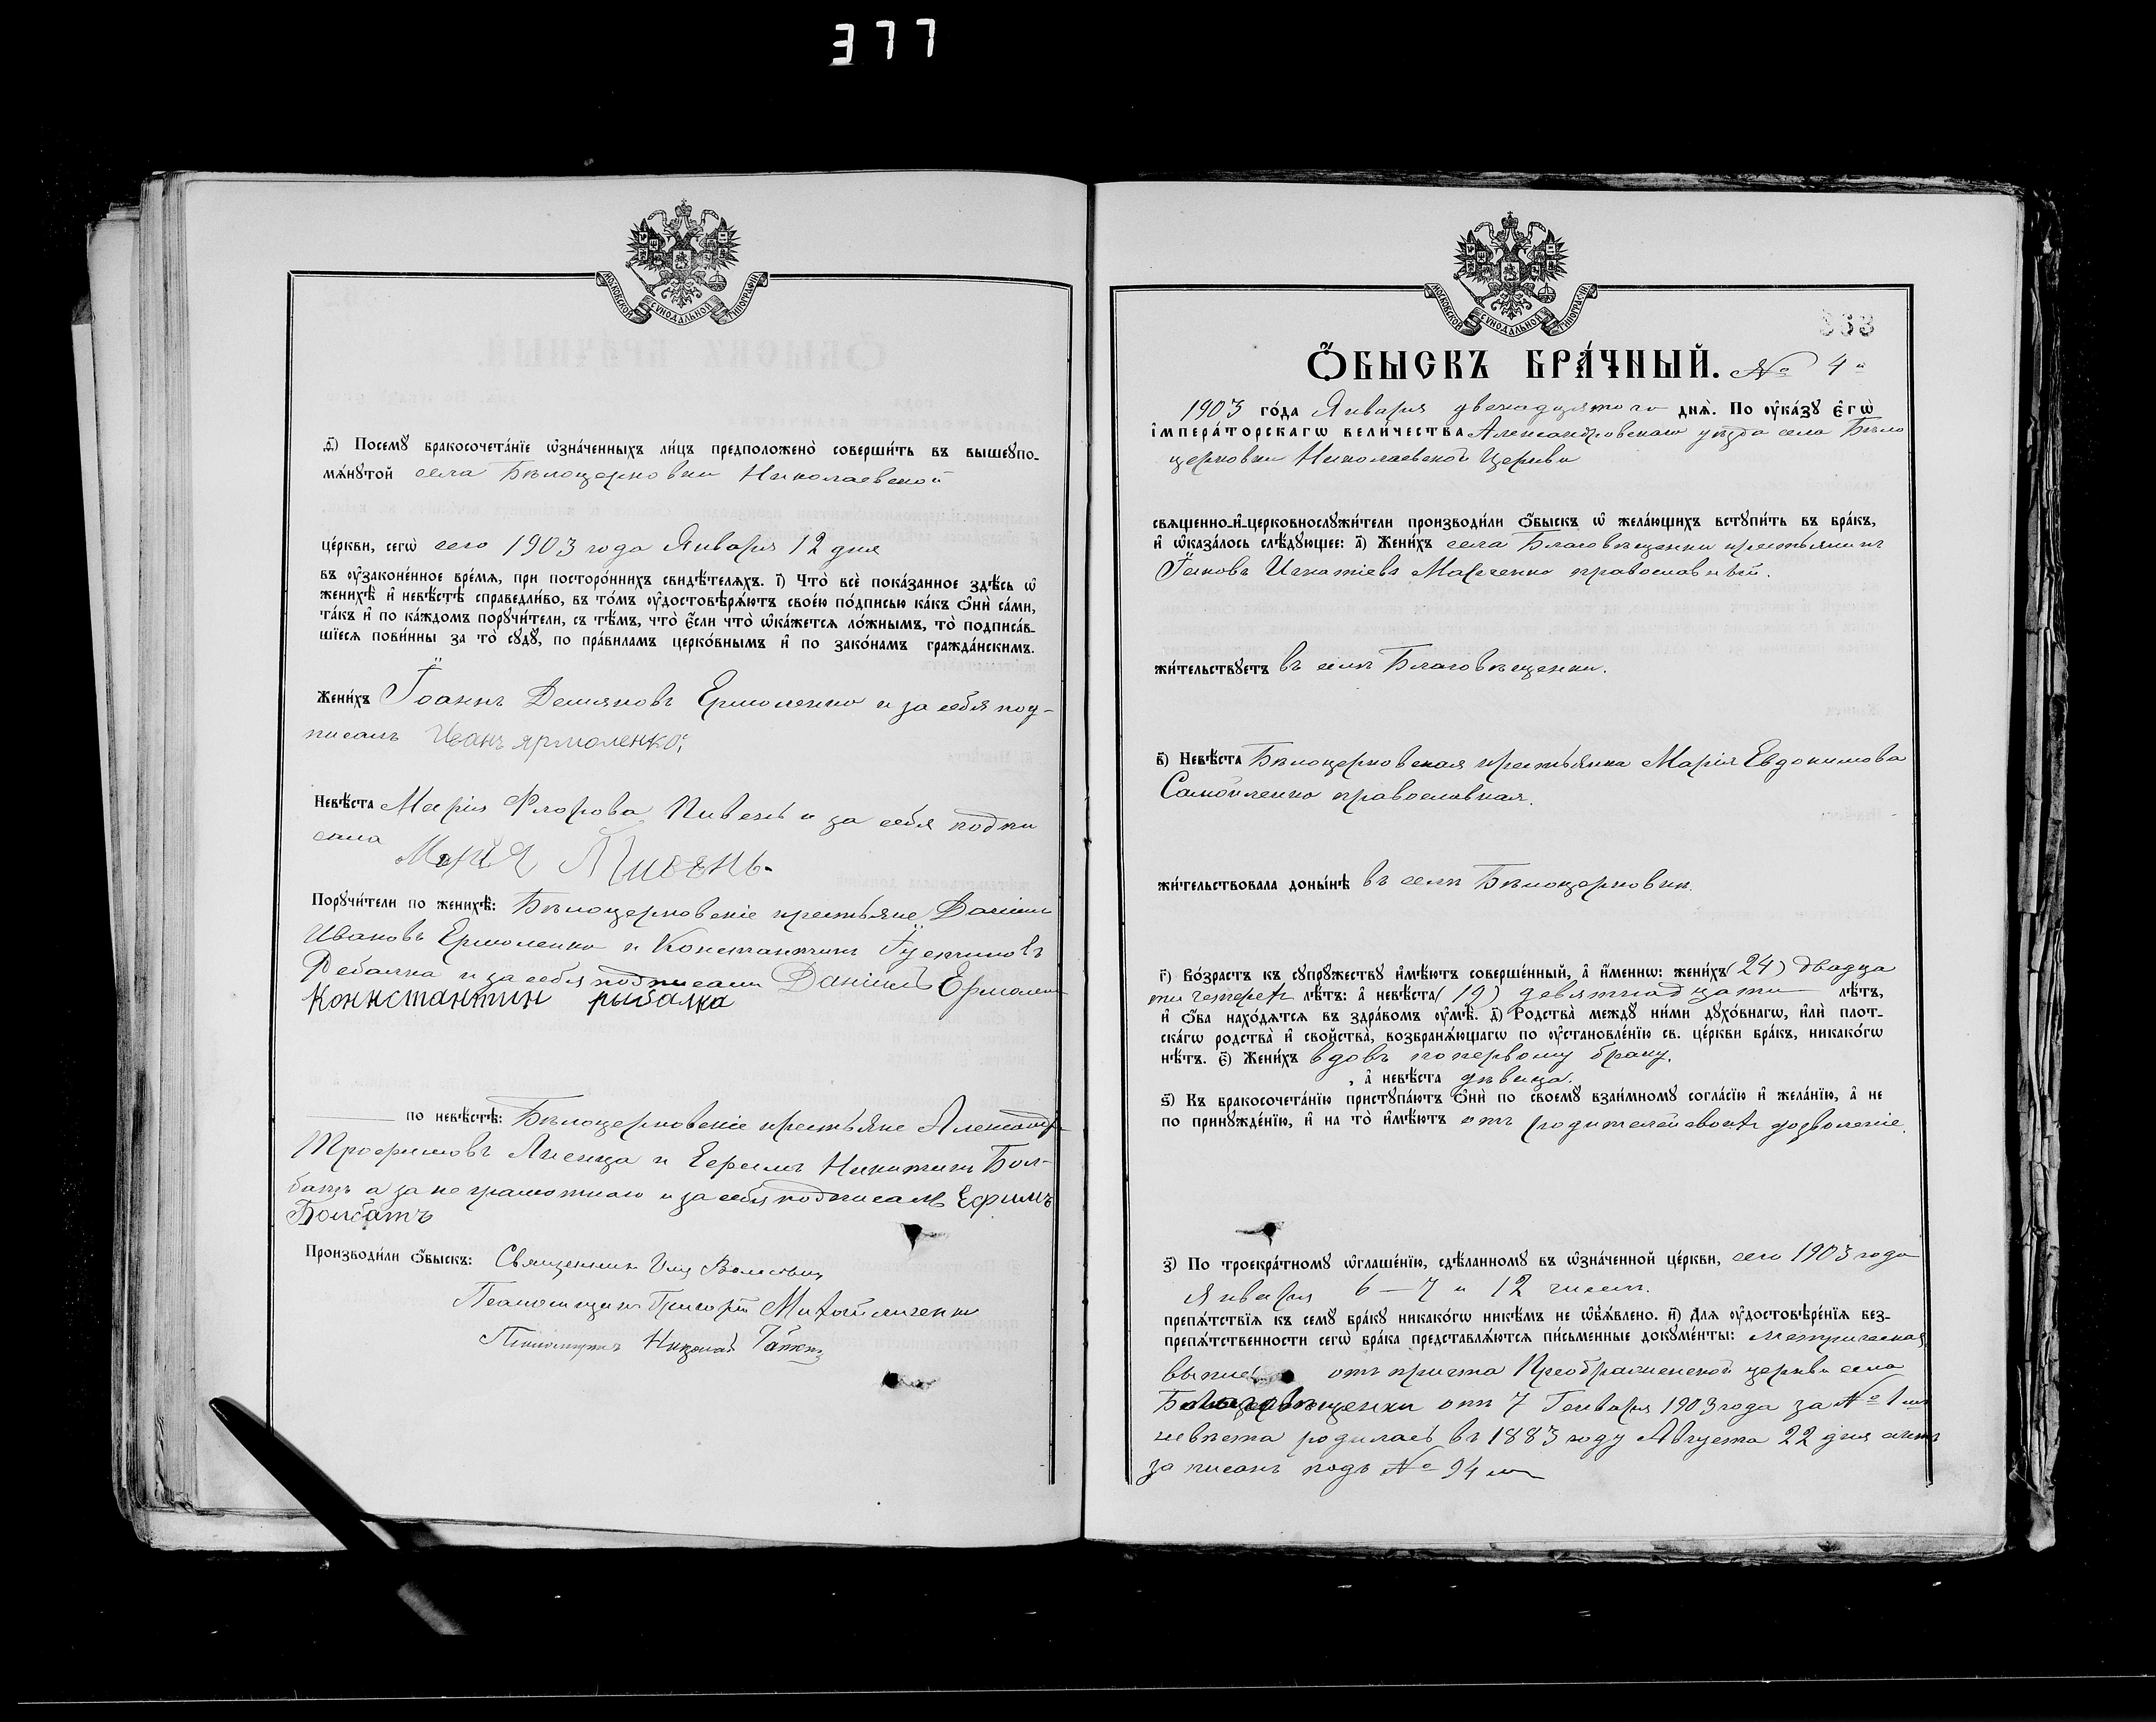 377
МОСКОВСКОЙ СѴНОДАЛЬНОЙ ТИПОГРАФІИ
ѳ҃) Посемꙋ бракосочета́нїе ѡ҆зна́ченныхъ ли́цъ предположено̀ соверши́ть въ вышеꙋпо-
мѧ́нꙋтой села Бѣлоцерковки Николаевской
це́ркви, сегѡ̀ сего 1903 года Января 12 дня
въ ᲂу҆законе́нное вре́мѧ, при посторо́ннихъ свидѣ́телѧхъ. і҃) Что̀ всѐ пока́занное здѣ́сь ѡ҆
женихѣ̀ и҆ невѣ́стѣ справедли́во, въ то́мъ ᲂу҆достовѣрѧ́ютъ свое́ю по́дписью ка́къ ѻ҆нѝ са́ми,
та́къ и҆ по ка́ждомъ порꙋчи́тели, съ тѣ́мъ, что̀ є҆́сли что̀ ѡ҆ка́жетсѧ ло́жнымъ, то̀ подписа́в-
шїесѧ пови́нны за то̀ сꙋдꙋ̀, по пра́виламъ церко́внымъ и҆ по зако́намъ гражда́нскимъ.
Жени́хъ Іоаннъ Демяновъ Ермоленко и за себя под-
писалъ Иванъ ярмоленко
Невѣ́ста Марія Флорова Пивень и за себя подпи
сала Марія Пивень
Порꙋчи́тели по женихѣ̀: Бѣлоцерковскіе крестьяне Даніилъ
Ивановъ Ермоленко и Константинъ Іустиновъ
Рибалка и за себя подписали Даніилъ Ермолен
Коннстантин рыбалка
по невѣ́стѣ: Бѣлоцерковскіе крестьяне Александръ
Трофимовъ Лисица и Ефимъ Никитинъ Бол-
батъ а за не грамотнаго и за себя подписалъ Ефимъ
Болбатъ
Производи́ли ѻ҆́быскъ: Священникъ
Псаломщикъ Григорій Михайличенко
Николай
МОСКОВСКОЙ СѴНОДАЛЬНОЙ ТИПОГРАФІИ
363
Ѻ҆́БЫСКЪ БРА́ЧНЫЙ. № 4й
1903 го́да Января двенадцятого днѧ̀. По ᲂу҆ка́зꙋ є҆гѡ̀
і҆мпера́торскагѡ вели́чества Александровскаго уѣзда села Бѣло
церковки Николаевской Церкви
свѧще́нно-и҆-церковнослꙋжи́тели производи́ли ѻ҆́быскъ ѡ҆ жела́ющихъ встꙋпи́ть въ бра́къ,
и҆ ѡ҆каза́лось слѣ́дꙋющее: а҃) Жени́хъ села Благовѣщенки крестьянинъ
Іаковъ Игнатіевъ Марченко православный.
жи́тельствꙋетъ въ селѣ Благовѣщенки.
в҃) Невѣ́ста Бѣлоцерковская крестьянка Марія Евдокимова
Самойленко православная.
жи́тельствовала доны́нѣ въ селѣ Бѣлоцерковки.
г҃) Во́зрастъ къ сꙋпрꙋ́жествꙋ и҆мѣ́ютъ соверше́нный, а҆ и҆́менно: жени́хъ (24) двадца
ти четырехъ лѣ́тъ: а҆ невѣ́ста (19) девятнадцати лѣ́тъ,
и҆ ѻ҆́ба нахо́дѧтсѧ въ здра́вомъ ᲂу҆мѣ̀. д҃) Родства̀ междꙋ ни́ми дꙋхо́внагѡ, и҆лѝ плот-
ска́гѡ родства̀ и҆ свойства̀, возбранѧ́ющагѡ по ᲂу҆становле́нїю св. це́ркви бра́къ, никако́гѡ
нѣ́тъ. є҃) Жени́хъ вдовъ по первому браку,
, а҆ невѣ́ста дѣвица.
ѕ҃) Къ бракосочета́нїю пристꙋпа́ютъ ѻ҆нѝ по своемꙋ̀ взаи́мномꙋ согла́сїю и҆ жела́нїю, а҆ не
по принꙋжде́нїю, и҆ на то̀ и҆мѣ́ютъ отъ родителей своихъ дозволеніе.
з҃) По троекра́тномꙋ ѡ҆глаше́нїю, сдѣ́ланномꙋ въ ѡ҆зна́ченной це́ркви, сего 1903 года
Января 6 – 7 и 12 чиселъ.
препѧ́тствїѧ къ семꙋ̀ бра́кꙋ никако́гѡ никѣ́мъ не ѡ҆б̾ѧ́влено. и҃) Длѧ ᲂу҆достовѣре́нїѧ без-
препѧ́тственности сегѡ̀ бра́ка представлѧ́ютсѧ пи́сьменные докꙋме́нты: метрическая
отъ причта Преображенской церкви села
Благовѣщенки отъ 7 Генваря 1903 года за № 1 мъ
невѣста родилась въ 1883 году Августа 22 дня актъ
записанъ подъ № 94 мъ